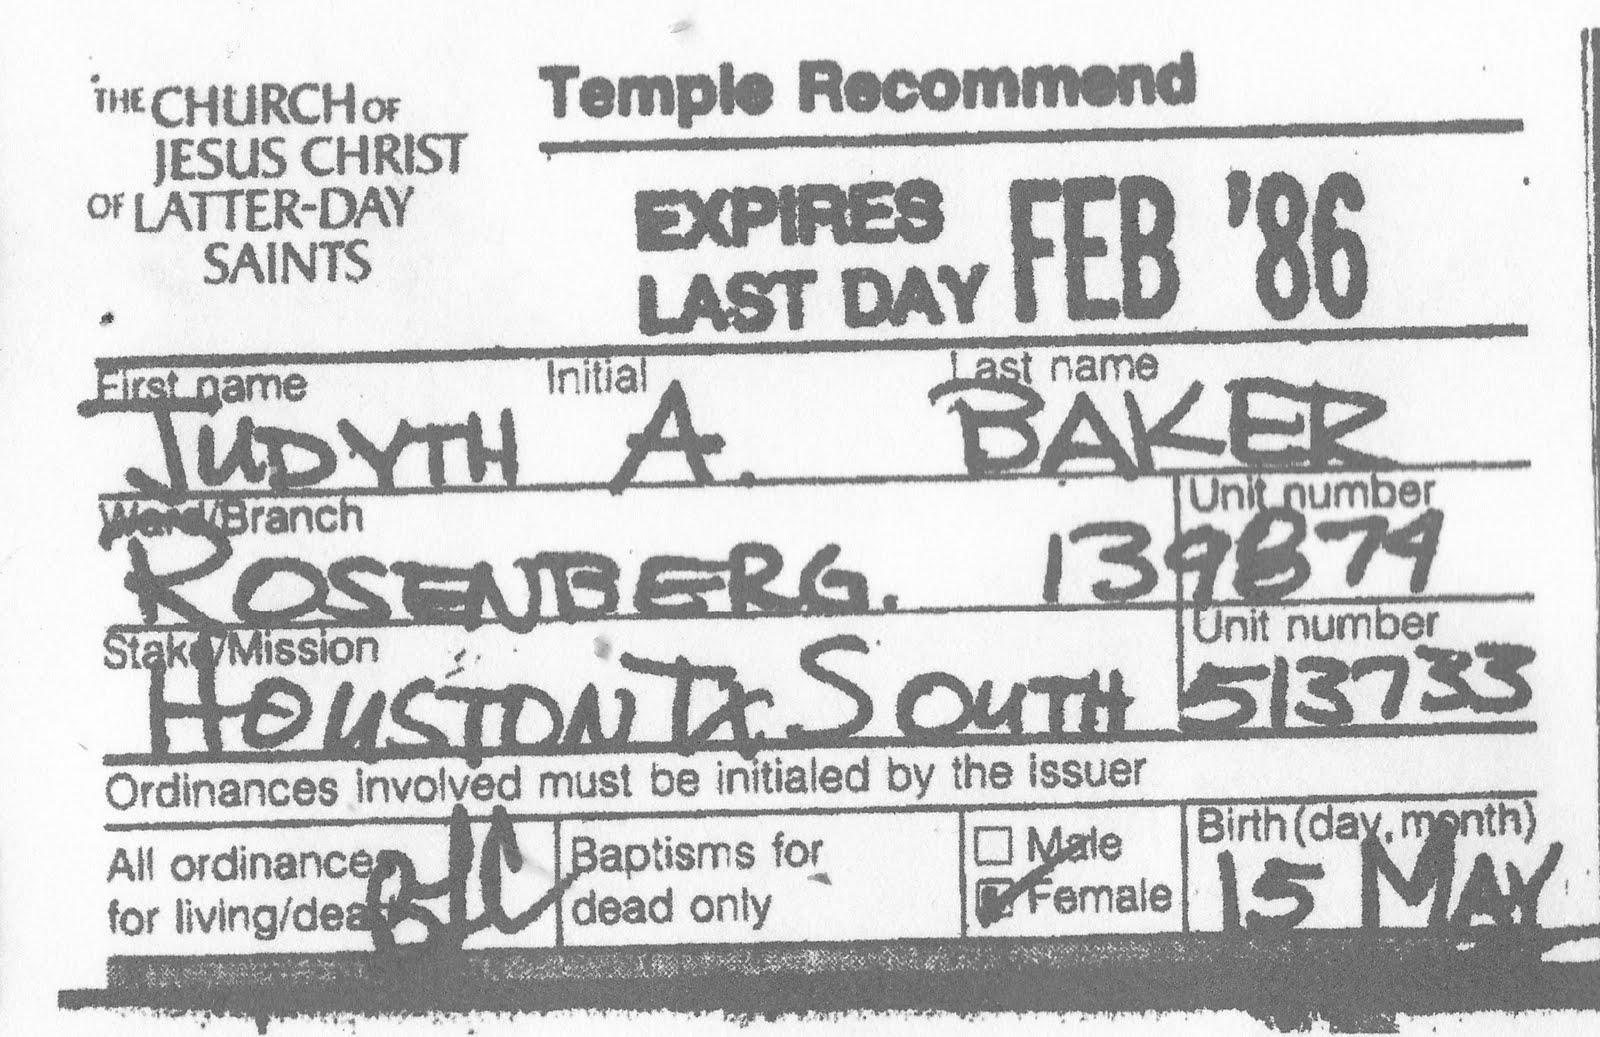 THE CHURCH OF
JESUS CHRIST
OF LATTER-DAY
SAINTS
Temple Recommend
EXPIRES
LAST DAY FEB '86
First name Initial Last name
JUDYTH A. BAKER
Ward/Branch Unit number
ROSENBERG. 139874
Stake/Mission Unit number
HOUSTON TX. SOUTH 513733
Ordinances involved must be initialed by the issuer
All ordinances
for living/dead
Baptisms for
dead only
Male
Female
Birth (day, month)
15 MAY